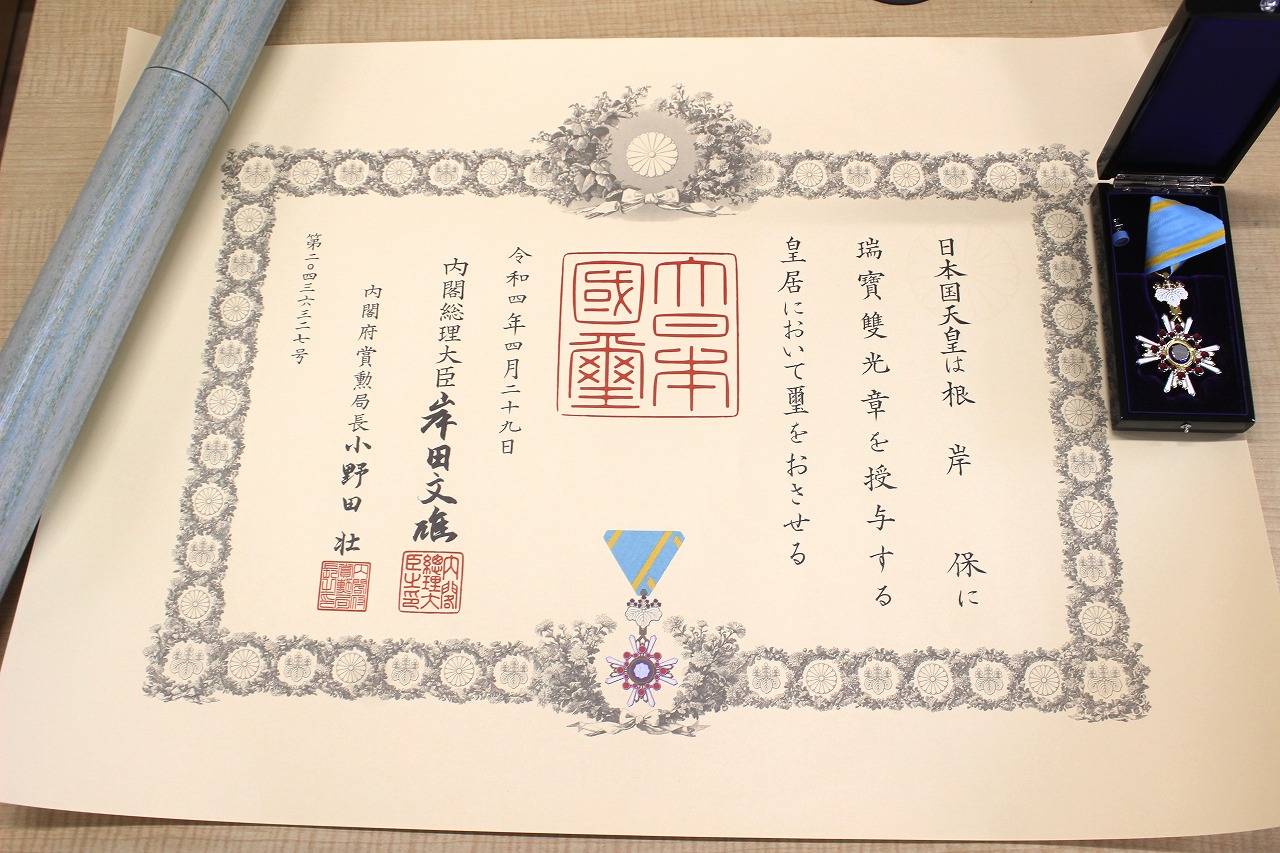 日本国天皇は根岸保に
瑞寶雙光章を授与する
皇居において璽をおさせる
大日本國璽
令和四年四月二十九日
内閣総理大臣岸田文雄
内閣總理大臣之印
内閣府賞勲局長小野田壮
内閣府賞勲局長之印
第二〇四三六三二七号